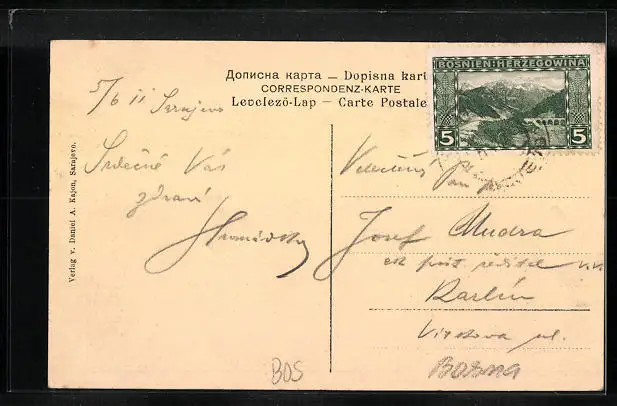 Дописна карта — Dopisna kart
CORRESPONDENZ-KARTE
Levelező-Lap — Carte Postale
BOSNIEN-HERZEGOWINA
5 5
5/6 11 Sarajevo
Srdečně Vás
zdraví
Verlag v. Daniel A. Kajon, Sarajevo.
Velectěný
Pan
Josef Mudra
ředitel
Karlín
Vítkova ul.
BOS
BOSNA